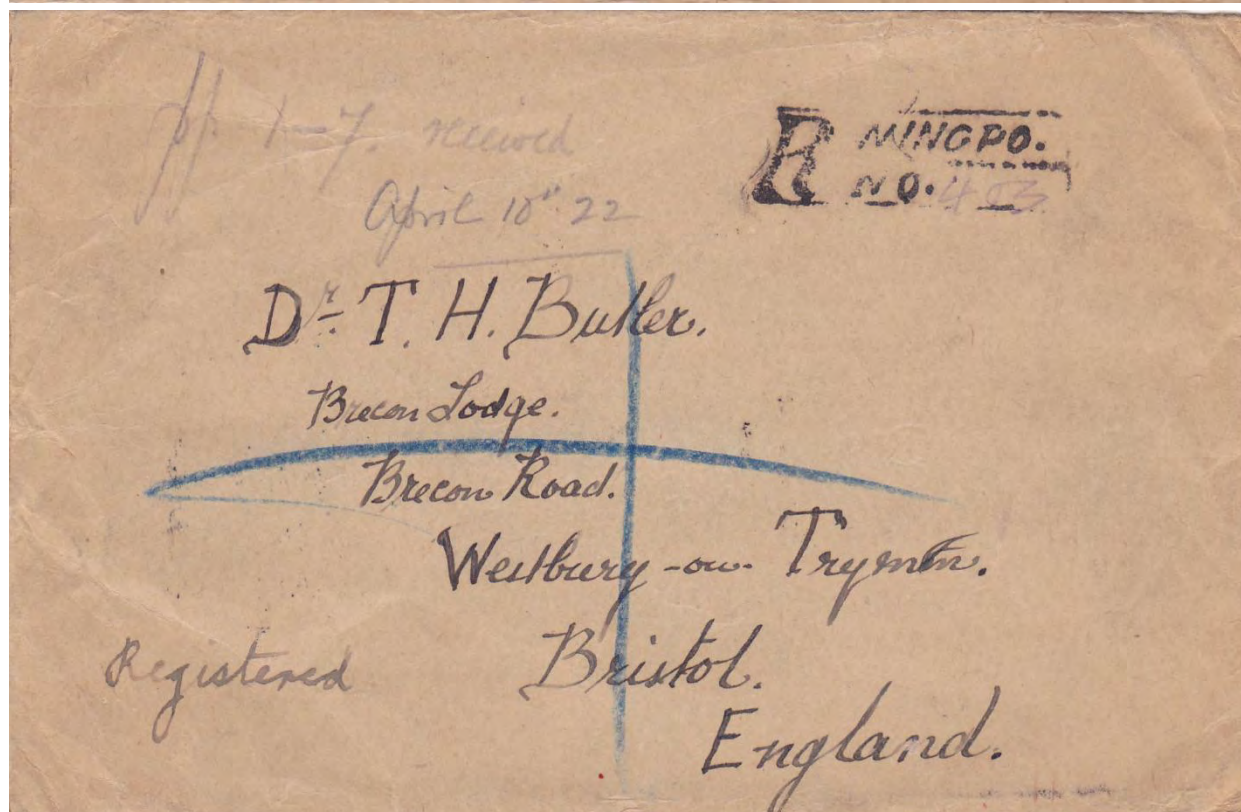 pp 1-7. received
April 10th 22
R NINGPO.
NO. 403
Dr. T. H. Butler.
Brecon Lodge.
Brecon Road.
Westbury-on-Trym.
Bristol.
England.
Registered